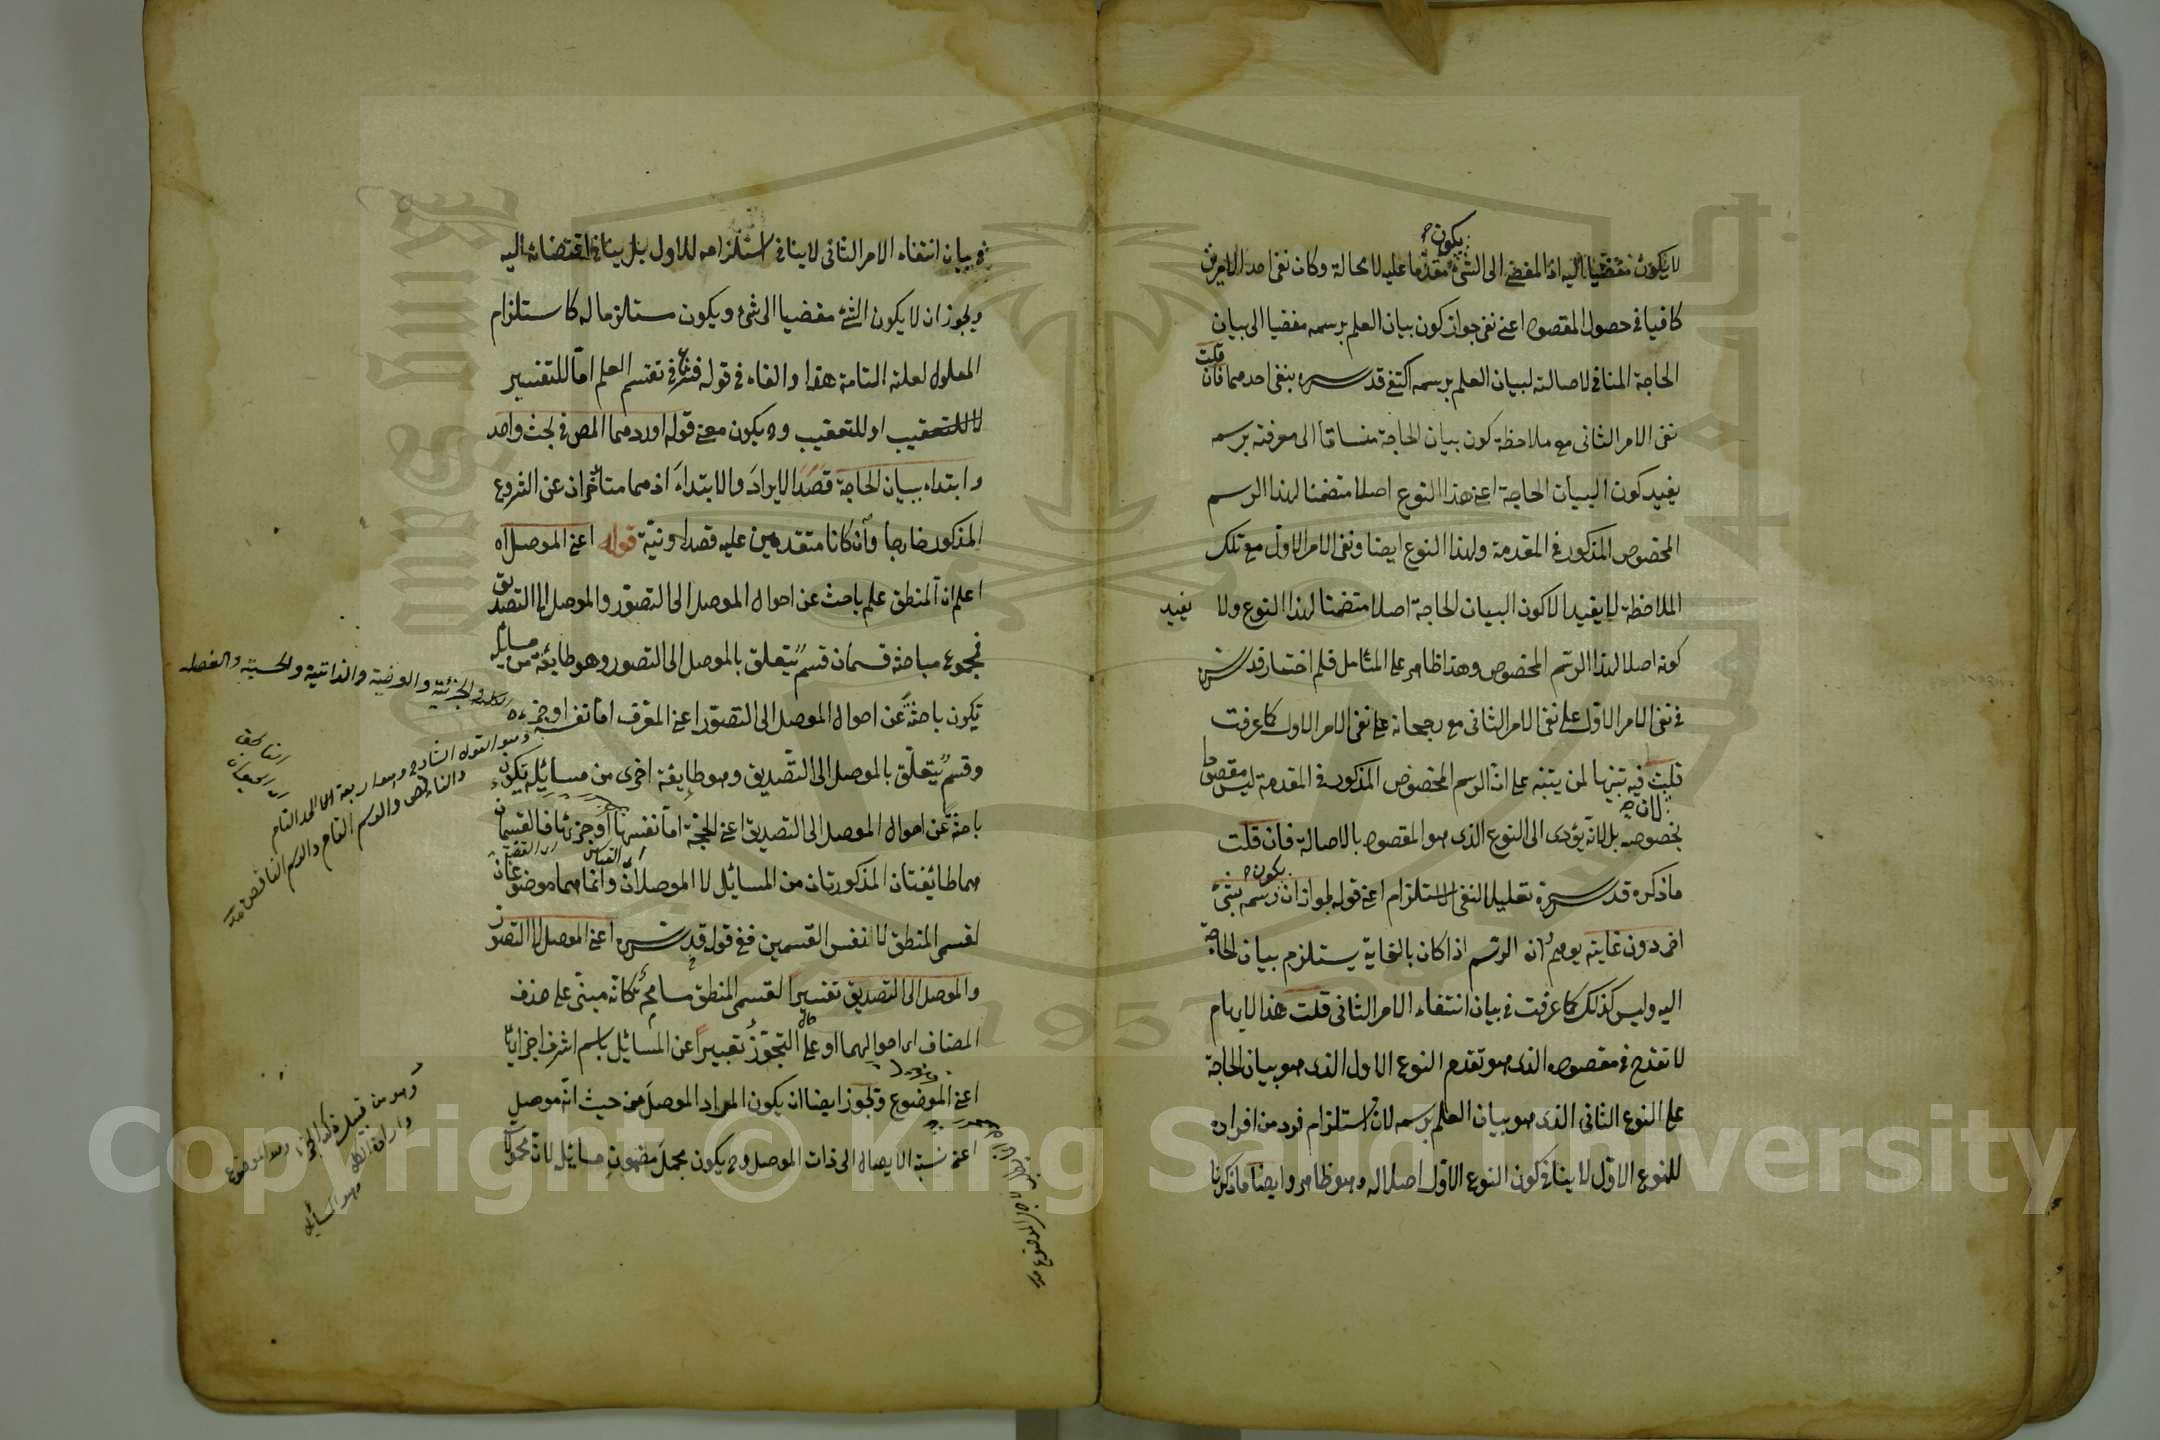 لا يكون مفضيا اليه اذ المفضى الى الشئ يكون مقدما عليه لا محالة وكان نفى احد الامرين
كافيا فى حصول المقصود اعنى نفى جواز كون بيان العلم برسمه مفضيا الى بيان
الحاجة المنافى لاصالته لبيان العلم برسمه اكتفى قدس سره بنفى احدهما فان قلت
نفى الامر الثانى مع ملاحظة كون بيان الحاجة منساقا الى معرفته برسمه
يفيد كون البيان الحاجة اعنى هذا النوع اصلا متضمنا لهذا الرسم
المخصوص المذكور فى المقدمة ولهذا النوع ايضا ونفى الامر الاول مع تلك
الملاحظة لا يفيد الا كون البيان الحاجة اصلا متضمنا لهذا النوع ولا يفيد
كونه اصلا لهذا الرسم المخصوص وهذا ظاهر على المتأمل فلم اختار قدس سره
فى نفى الامر الاول على نفى الامر الثانى مع رجحانه على نفى الامر الاول كما عرفت
قلت فيه تنبيها لمن يتنبه على ان الرسم المخصوص المذكور فى المقدمة ليس مقصودا
بخصوصه بل لانه يؤدى الى النوع الذى هو المقصود بالاصالة فان قلت
ما ذكره قدس سره تعليلا لنفى الاستلزام اعنى قوله لجواز ان يكون رسمه بشئ
اخر دون غايته يوهم ان الرسم اذا كان بالغاية يستلزم بيان الحاجة
اليه وليس كذلك كما عرفت فى بيان انتفاء الامر الثانى قلت هذا الايهام
لا تقدح فى مقصوده الذى هو تقدم النوع الاول الذى هو بيان الحاجة
على النوع الثانى الذى هو بيان العلم برسمه لان استلزام فرد من افراده
للنوع الاول لا ينافى كون النوع الاول اصلا له وهو ظاهر وايضا ما ذكرنا
فى بيان انتفاء الامر الثانى لا ينافى استلزامه للاول بل ينافى اقتضائه اليه
ويجوز ان لا يكون الشئ مفضيا الى شئ ويكون مستلزما له كاستلزام
المعلول لعلته التامة هذا والفاء فى قوله فشرع فى تقسيم العلم اما للتفسير
لا للتعقيب او للتعقيب وح يكون معنى قوله اوردهما المص فى بحث واحد
وابتداء ببيان الحاجة قصد الايراد والابتداء اذ هما متأخران عن الشروع
المذكور خارجا وان كانا متقدمين عليه قصدا ونية قوله اعنى الموصل اه
اعلم ان المنطق علم باحث عن احوال الموصل الى التصور والموصل الى التصديق
فمجموع مباحثه قسمان قسم يتعلق بالموصل الى التصور وهو طايفة من مسائله
تكون باحثة عن احوال الموصل الى التصور اعنى المعرف اما نفسه او جزءه
وقسم يتعلق بالموصل الى التصديق وهو طايفة اخرى من مسائله تكون
باحثة عن احوال الموصل الى التصديق اعنى الحجة اما نفسها او جزئها فالقسمان
هما طائفتان المذكورتان من المسائل لا الموصلان وانما هما موضوعان
لقسمى المنطق لا نفس القسمين ففى قوله قدس سره اعنى الموصل الى التصور
والموصل الى التصديق تفسيرا لقسمى المنطق مسامح فكانه مبنى على حذف
المضاف اى احوالهما او على التجوز تعبيرا عن المسائل باسم اشرف اجزائها
اعنى الموضوع ويجوز ايضا ان يكون المراد الموصل من حيث انه موصل
اعنى نسبة الايصال الى ذات الموصل وح يكون مجمل مضمون مسائل لان محمولات
والجزئية والعرضية والذاتية والجنسية والفصلية
وهو القول الشارح وهو اربعة الحد التام
والناقص والرسم التام والرسم الناقص منه